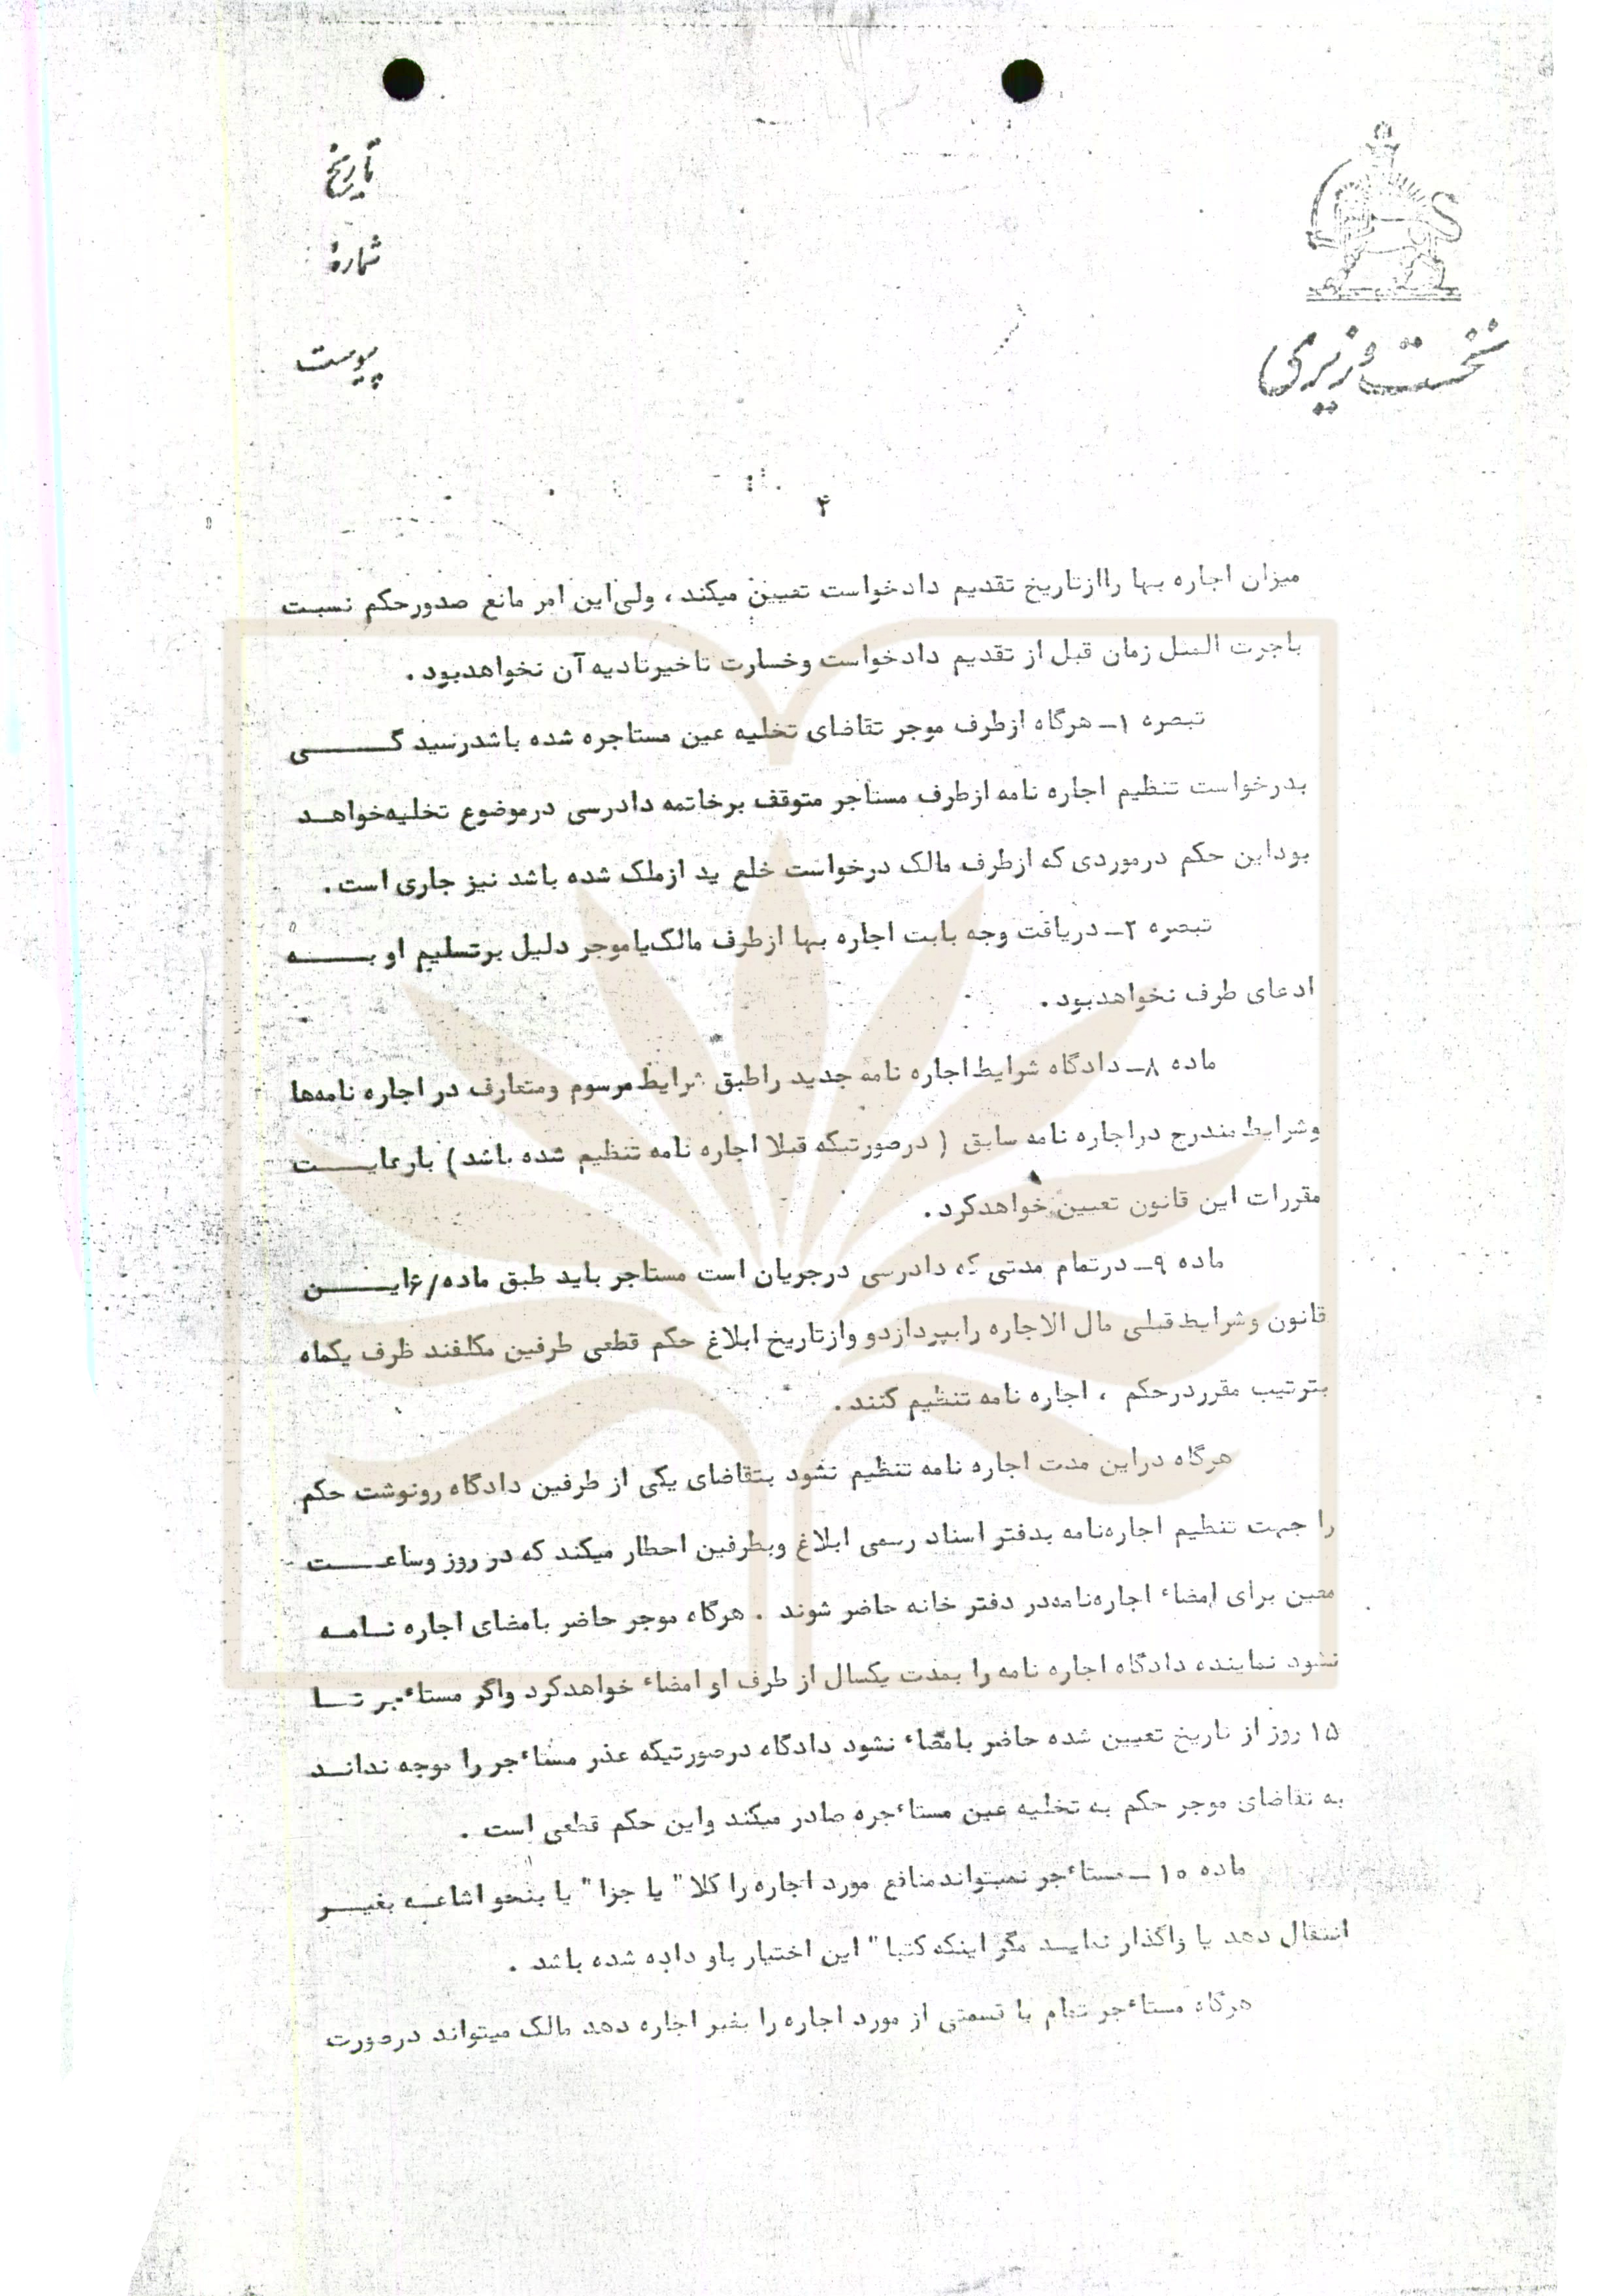 نخست وزیری
تاریخ
شماره
پیوست
۴
میزان اجاره بها راازتاریخ تقدیم دادخواست تعیین میکند ، ولی این امر مانع صدورحکم نسبت
باجرت المثل زمان قبل از تقدیم دادخواست وخسارت تاخیرتادیه آن نخواهدبود .
تبصره ۱ـ هرگاه ازطرف موجر تقاضای تخلیه عین مستاجره شده باشدرسید گـــــی
بدرخواست تنظیم اجاره نامه ازطرف مستاجر متوقف برخاتمه دادرسی درموضوع تخلیه‌خواهــد
بوداین حکم درموردی که ازطرف مالک درخواست خلع ید ازملک شده باشد نیز جاری است .
تبصره ۲ـ دریافت وجه بابت اجاره بها ازطرف مالک‌یاموجر دلیل برتسلیم او بـــــه
ادعای طرف نخواهدبود .
ماده ۸ـ دادگاه شرایط اجاره نامه جدید راطبق شرایط مرسوم ومتعارف در اجاره نامه‌ها
وشرایط مندرج دراجاره نامه سابق ( درصورتیکه قبلا اجاره نامه تنظیم شده باشد ) بارعایـــت
مقررات این قانون تعیین خواهدکرد .
ماده ۹ـ درتمام مدتی که دادرسی درجریان است مستاجر باید طبق ماده/۶ایـــــن
قانون وشرایط قبلی مال الاجاره رابپردازدو وازتاریخ ابلاغ حکم قطعی طرفین مکلفند ظرف یکماه
بترتیب مقرردرحکم ، اجاره نامه تنظیم کنند .
هرگاه دراین مدت اجاره نامه تنظیم نشود بتقاضای یکی از طرفین دادگاه رونوشت حکم
را جهت تنظیم اجاره‌نامه بدفتر اسناد رسمی ابلاغ وبطرفین احطار میکند که در روز وساعـــت
معین برای امضاء اجاره‌نامه‌در دفتر خانه حاضر شوند . هرگاه موجر حاضر بامضای اجاره نــامــه
نشود نماینده دادگاه اجاره نامه را بمدت یکسال از طرف او امضاء خواهدکرد واگر مستاءجر تــا
۱۵ روز از تاریخ تعیین شده حاضر بامضاء نشود دادگاه درصورتیکه عذر مستاءجر را موجه ندانــد
به تقاضای موجر حکم به تخلیه عین مستاءجره صادر میکند واین حکم قطعی است .
ماده ۱۰ ـ مستاءجر نمیتواندمنافع مورد اجاره را کلا" یا جزا" یا بنحو اشاعــه بغیـــر
انتقال دهد یا واگذار نمایــد مگر اینکه کتبا" این اختیار باو داده شده باشد .
هرگاه مستاءجر تمام یا قسمتی از مورد اجاره را بغیر اجاره دهد مالک میتواند درصورت